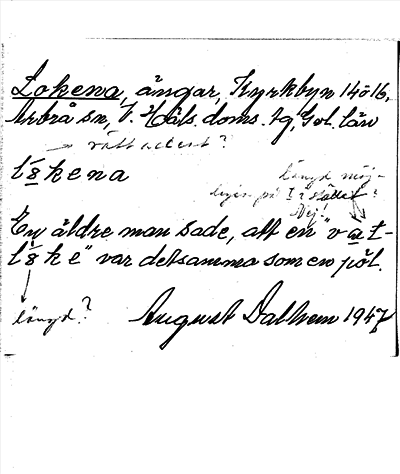 Lokena, ängar, Kyrkbyn 14 o 16,
Arbrå sn, V. Häls. doms. tg, Gvl. län
→ rätt accent?
lókena
längd möj-
ligen på i stället?
Nej!
En äldre man sade, att en "vat-
loke" var detsamma som en pöl.
längd?
August Dalhem 1947